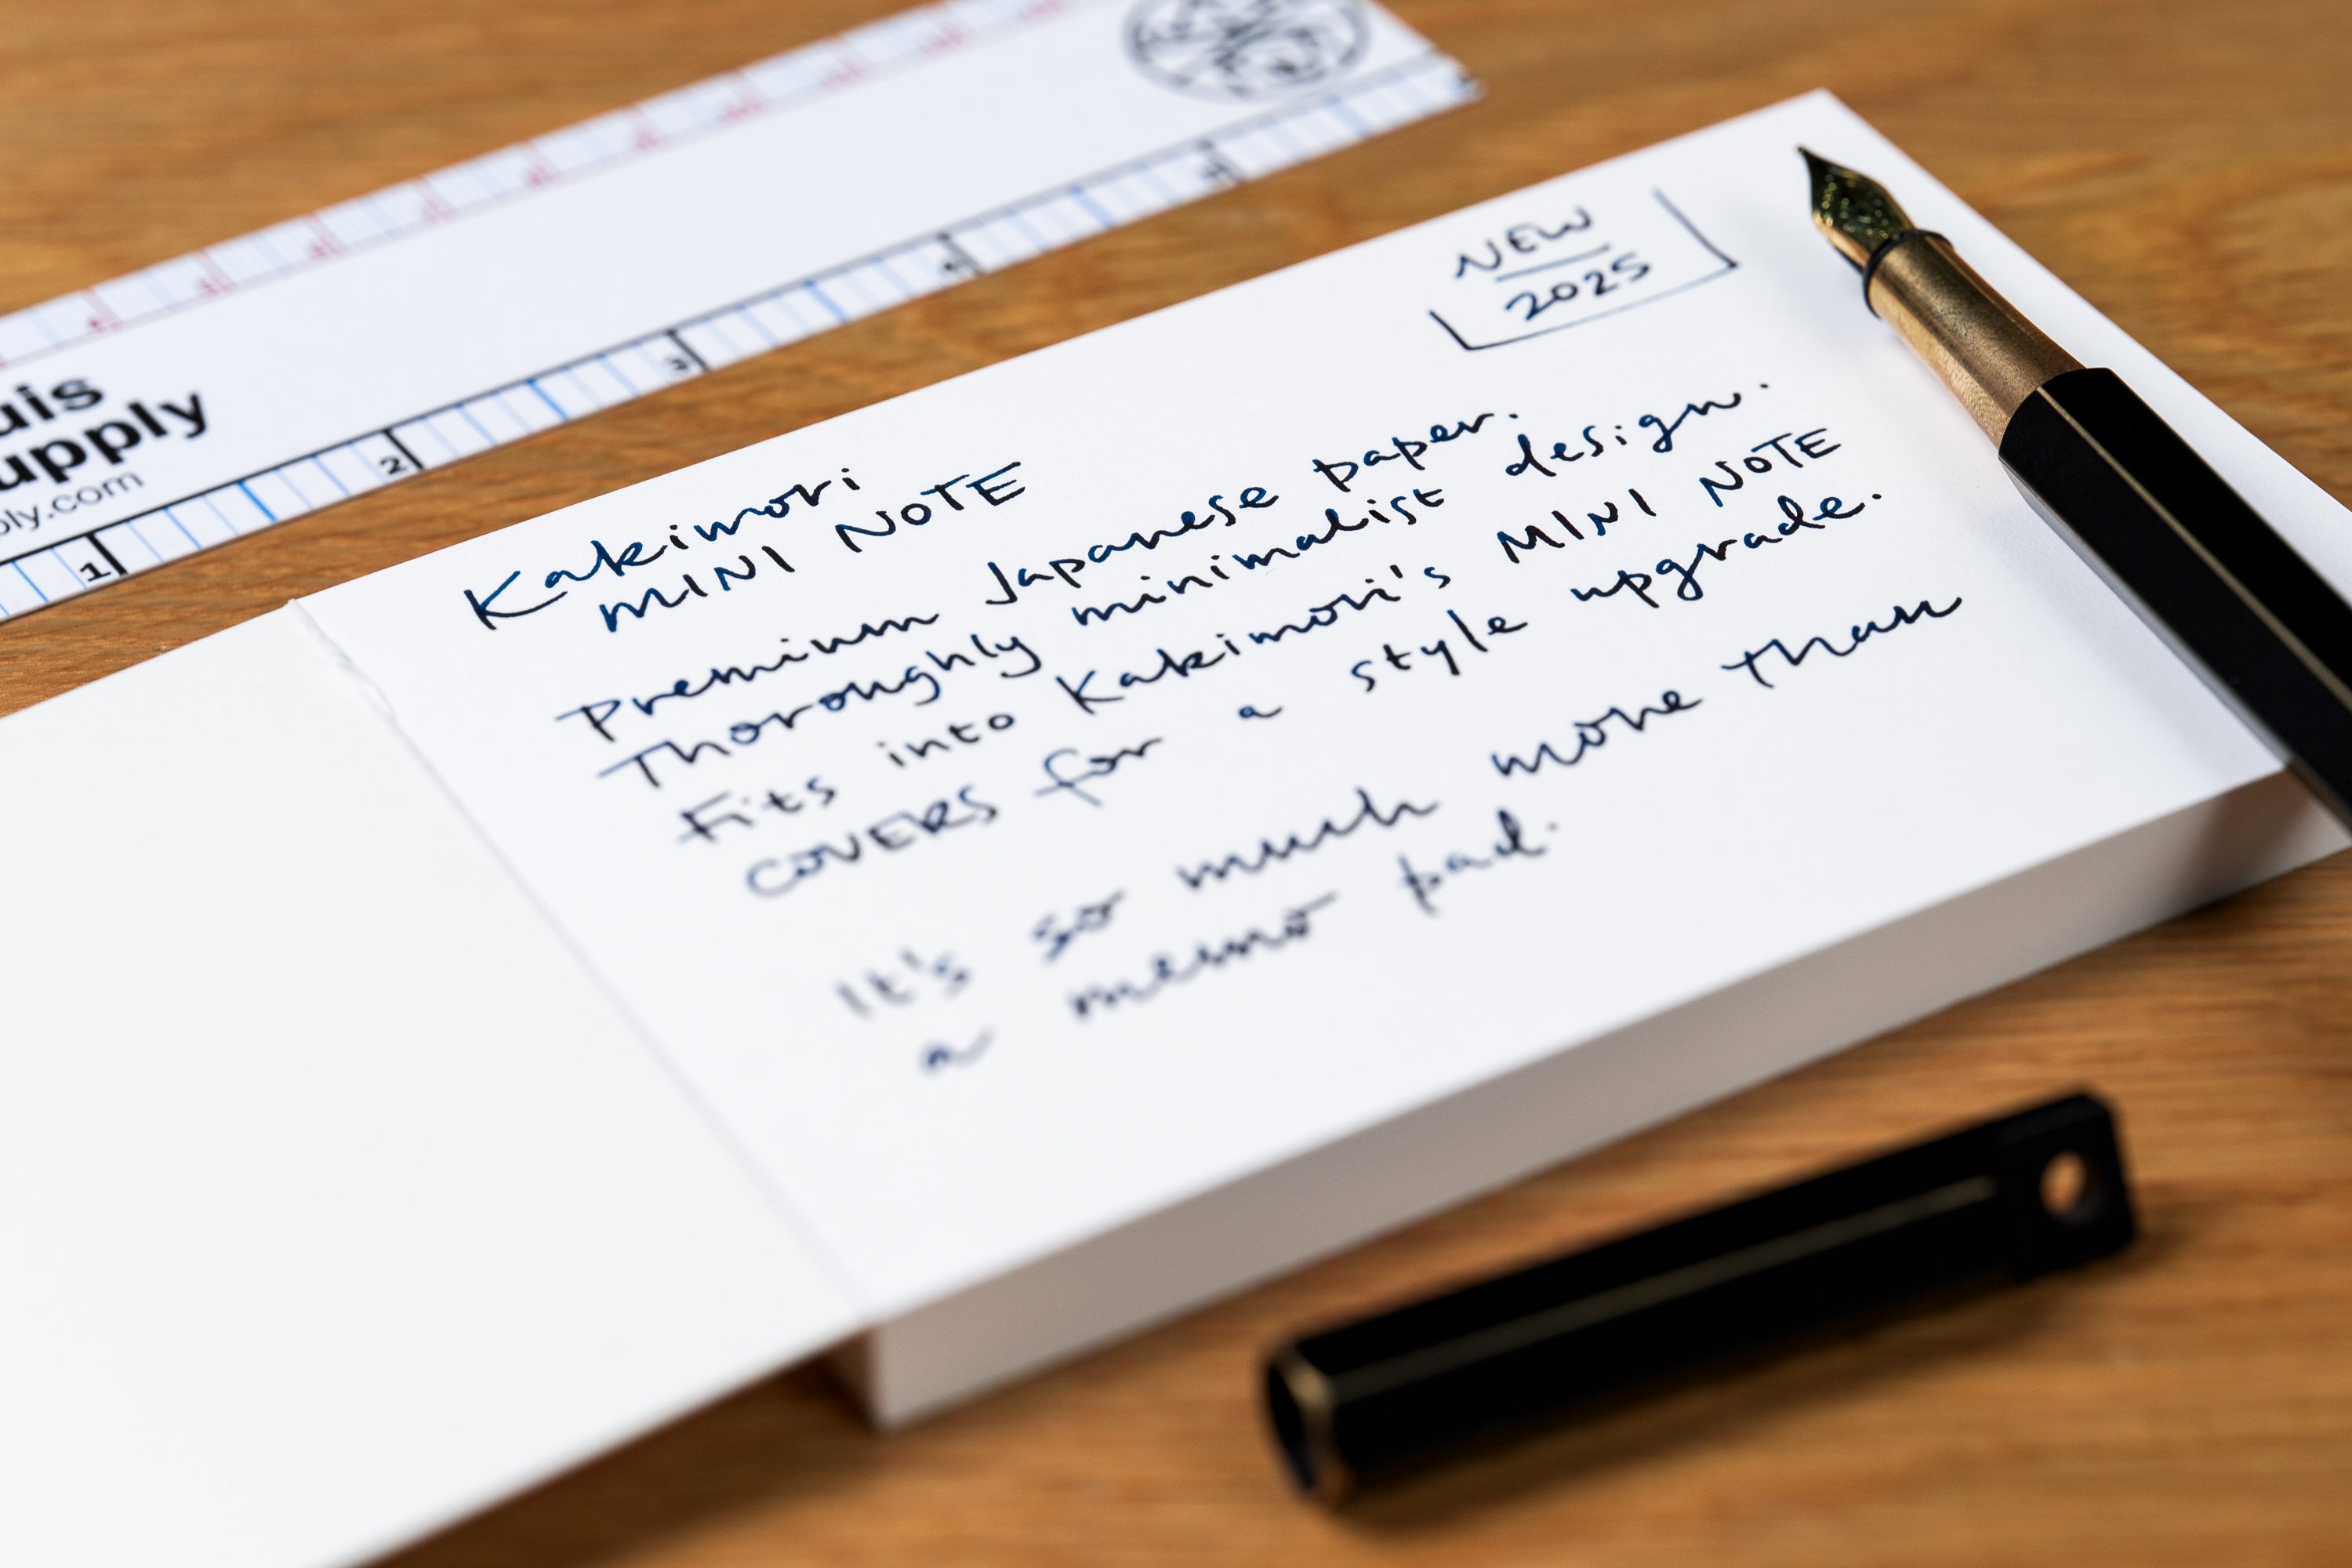 NEW
2025
Kakimori
MINI NOTE
Premium Japanese paper.
Thoroughly minimalist design.
Fits into Kakimori's MINI NOTE
COVERS for a style upgrade.
It's so much more than
a memo pad.
uis
upply
ply.com
1
2
3
4
5